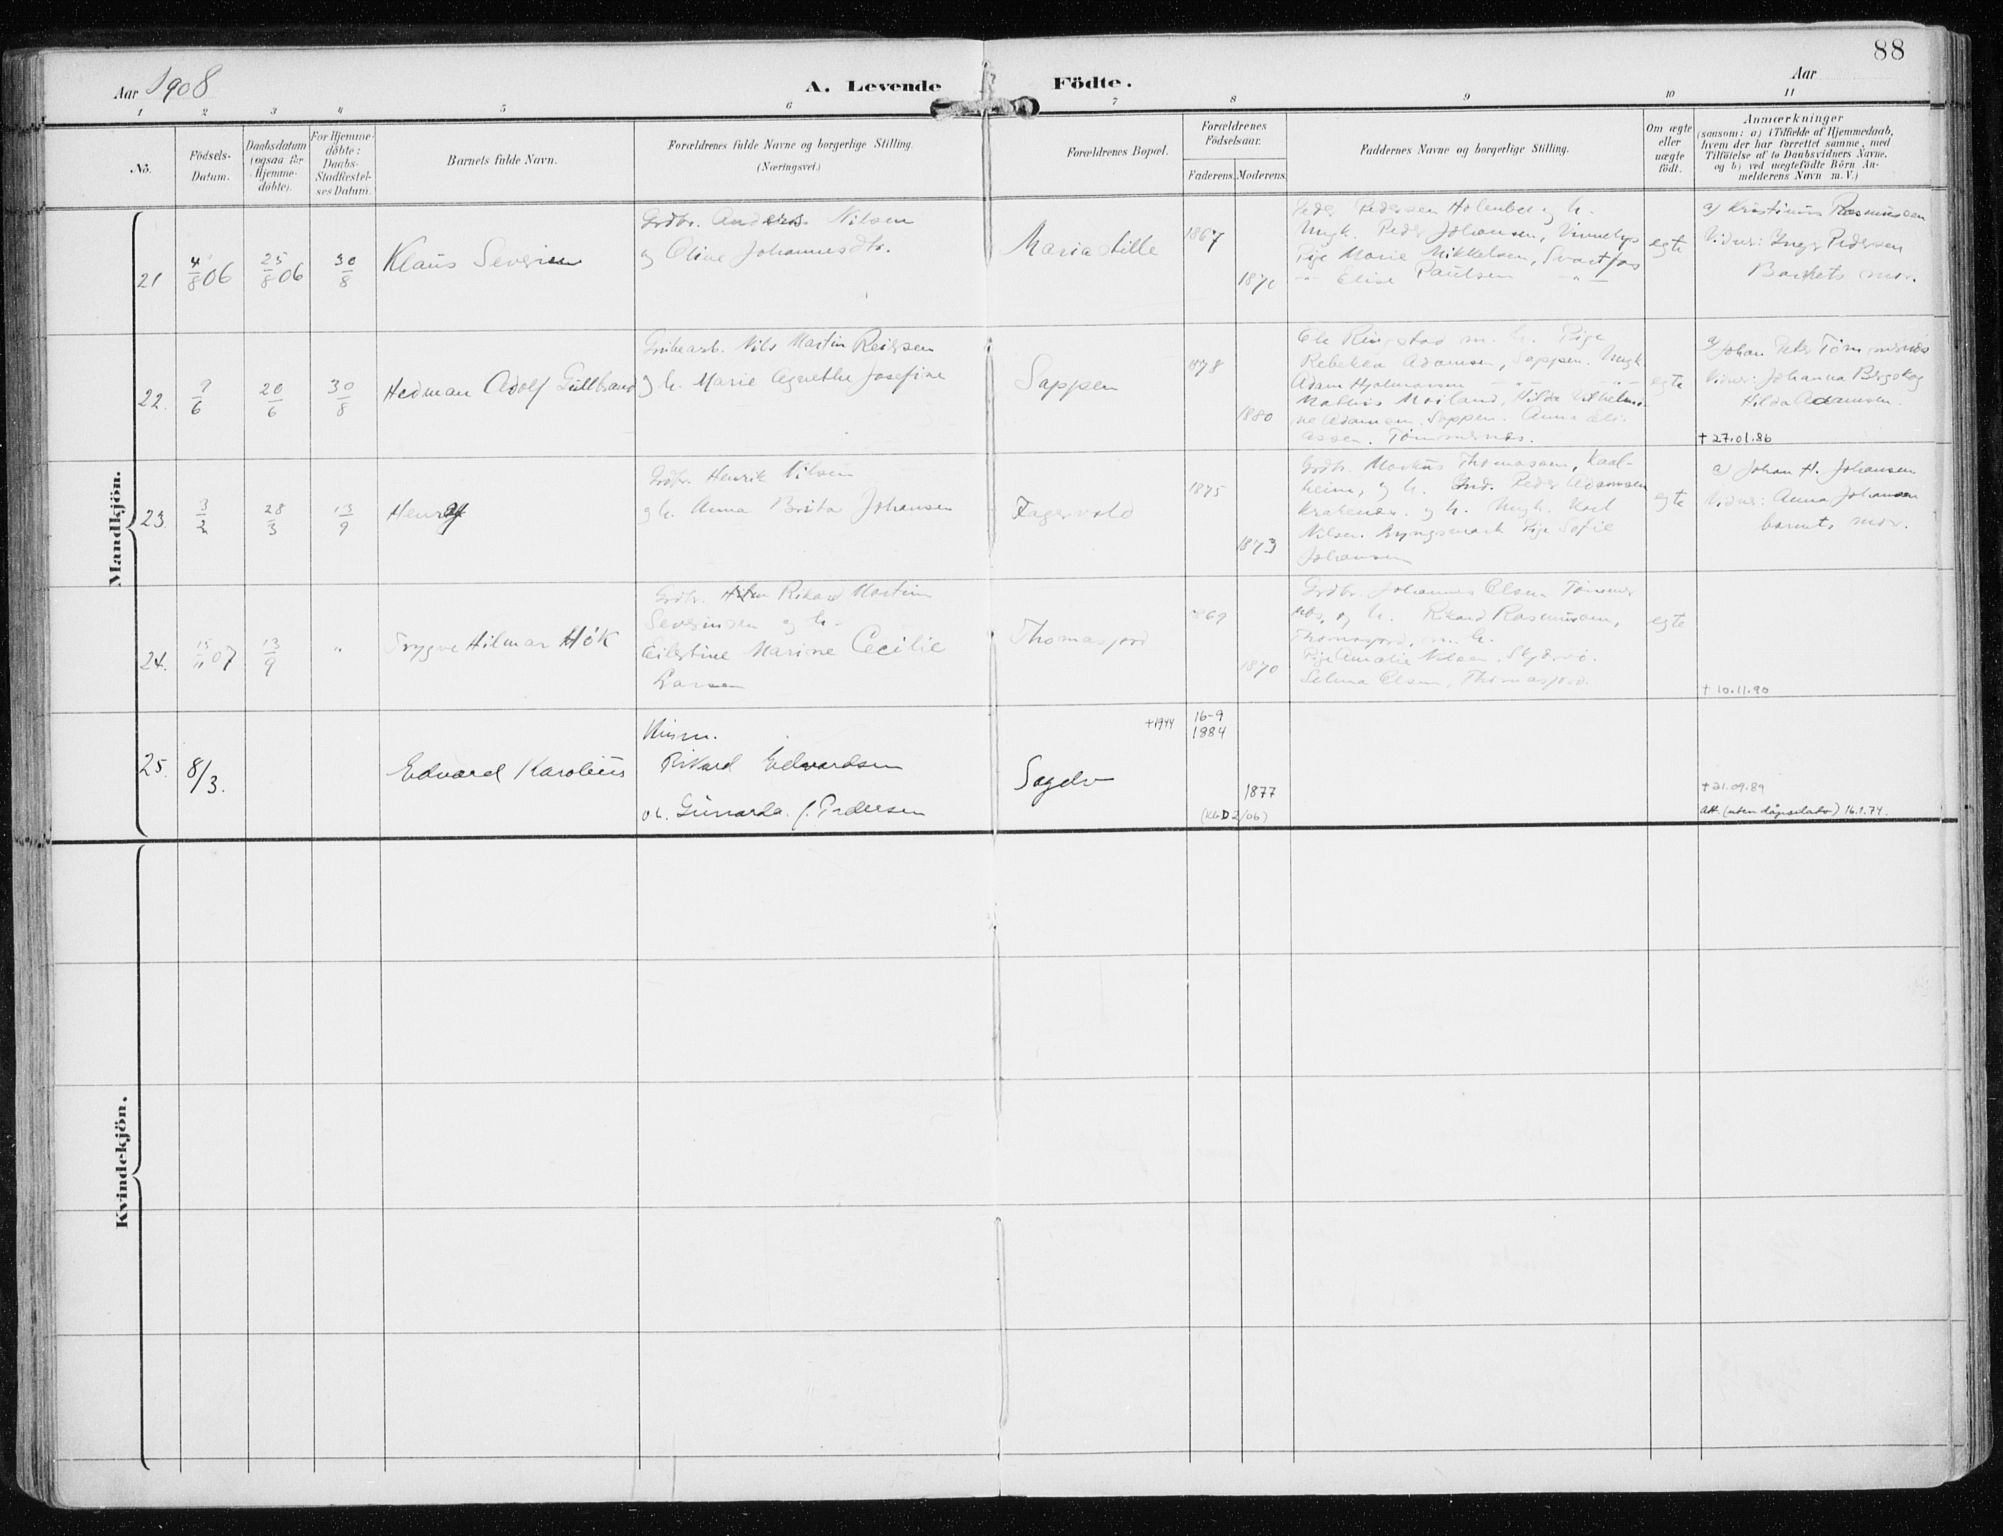 88
Aar 1908
A. Levende Födte.
Aar
1 2 3 4 5 6 7 8 9 10 11
No.
Födsels-
Datum.
Daabsdatum
(ogsaa for
Hjemme-
döbte).
For Hjemme-
döbte:
Daabs-
Stadfæstel-
ses Datum.
Barnets fulde Navn.
Forældrenes fulde Navne og borgerlige Stilling.
(Næringsvei.)
Forældrenes Bopæl.
Forældrenes
Födselsaar.
Faderens. Moderens.
Faddernes Navne og borgerlige Stilling.
Om ægte
eller
uægte
födt.
Anmærkninger
(saasom: a) i Tilfælde af Hjemmedaab,
hvem der har forrettet samme, med
Tilföielse af to Daabsvidners Navne,
og b) ved uægtefödte Börn An-
melderens Navn m. V.)
Mandkjön.
21 4/8 06 25/8 06 30/8
Klaus Severin
Grdbr. Anders Nilsen
og Oline Johannesdtr.
Mariastille
1867
Peder Pedersen Holenbec og h.
Ungk. Peder Johansen,
Pige Marie Mikkelsen, Svartfos
" Elise Paulsen "
egte
a) Kristinus Rasmussen
Vidner: Inger Pedersen
Barnets mor.
22. 20/6 30/8
Hedman Adolf Gullbrand
Grubearb. Nils Martin Reiersen
og h. Marie Agnethe Josefine
Sappen
1878
1880
Ole Ringstad m. h. Pige
Rebekka Adamsen, Sappen. Ungk
Adam Hjalmarsen
Mathis Moiland, Hilda Vilhelmi-
ne Adamsen. Sappen. Anna Eli-
assen. Tømmernes.
egte
a) Johan Peter Tømmernes
Vidner: Johanna Bergskog
Hilda Adamsen.
† 27.01.86
23. 3/2 28/3 13/9
Henry
Grdbr. Henrik Nilsen
og h. Anna Brita Johansen
Fagervold
1875
1873
Grdbr. Markus Thomassen, Kaal-
heim, og h. Peder Adamsen
og h. Ungk. Karl
Nilsen. Lyngsmark Pige Sofie
Johansen
egte
a) Johan H. Johansen
Vidner: Anna Johansen
barnets mor.
24. 15/11 07 13/9 "
Trygve Hilmar Hök
Grdbr. Rikard Martin
Severinsen og h.
Marine Cecilie
Larsen
Thomasjord
1869
1870
Grdbr. Johannes Olsen Tømmer
nes, og h. Rikard Rasmussen,
Thomasjord, m. h.
Pige Amalie Nilsen. Skjervø.
Selma Olsen, Thomasjord.
egte
† 10.11.90
25. 8/3.
Edvard Karolius
Husm.
Rikard Edvardsen
o h. Gunarda f. Pedersen
Sagelv
+1944
16-9
1884
1877
(Kb D 2/06)
† 21.09.89
Att. (uten dåpsdato) 16.1.74.
Kvindekjön.